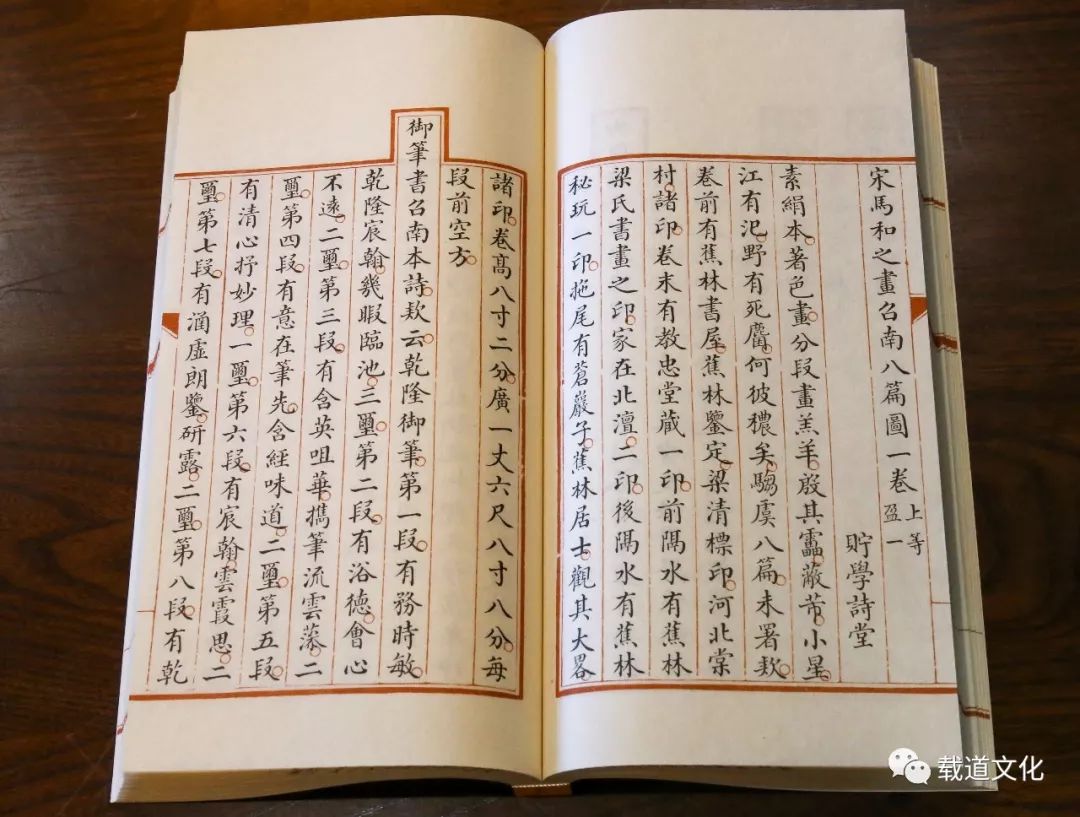 宋馬和之畫召南八篇圖一卷 上等 盈一
貯學詩堂
素絹本著色畫分段畫羔羊殷其靁蔽芾小星
江有汜野有死麕何彼穠矣騶虞八篇未署款
卷前有蕉林書屋蕉林鑒定梁清標印河北棠
村諸印卷末有教忠堂藏一印前隔水有蕉林
梁氏書畫之印家在北潭二印後隔水有蕉林
秘玩一印拖尾有蒼巖子蕉林居士觀其大畧
諸印卷高八寸二分廣一丈六尺八寸八分每
段前空方
御筆書召南本詩款云乾隆御筆第一段有務時敏
乾隆宸翰幾暇臨池三璽第二段有浴德會心
不遠二璽第三段有含英咀華擕筆流雲藻二
璽第四段有意在筆先含經味道二璽第五段
有清心抒妙理一璽第六段有宸翰雲霞思二
璽第七段有涵虛朗鑒研露二璽第八段有乾
载道文化